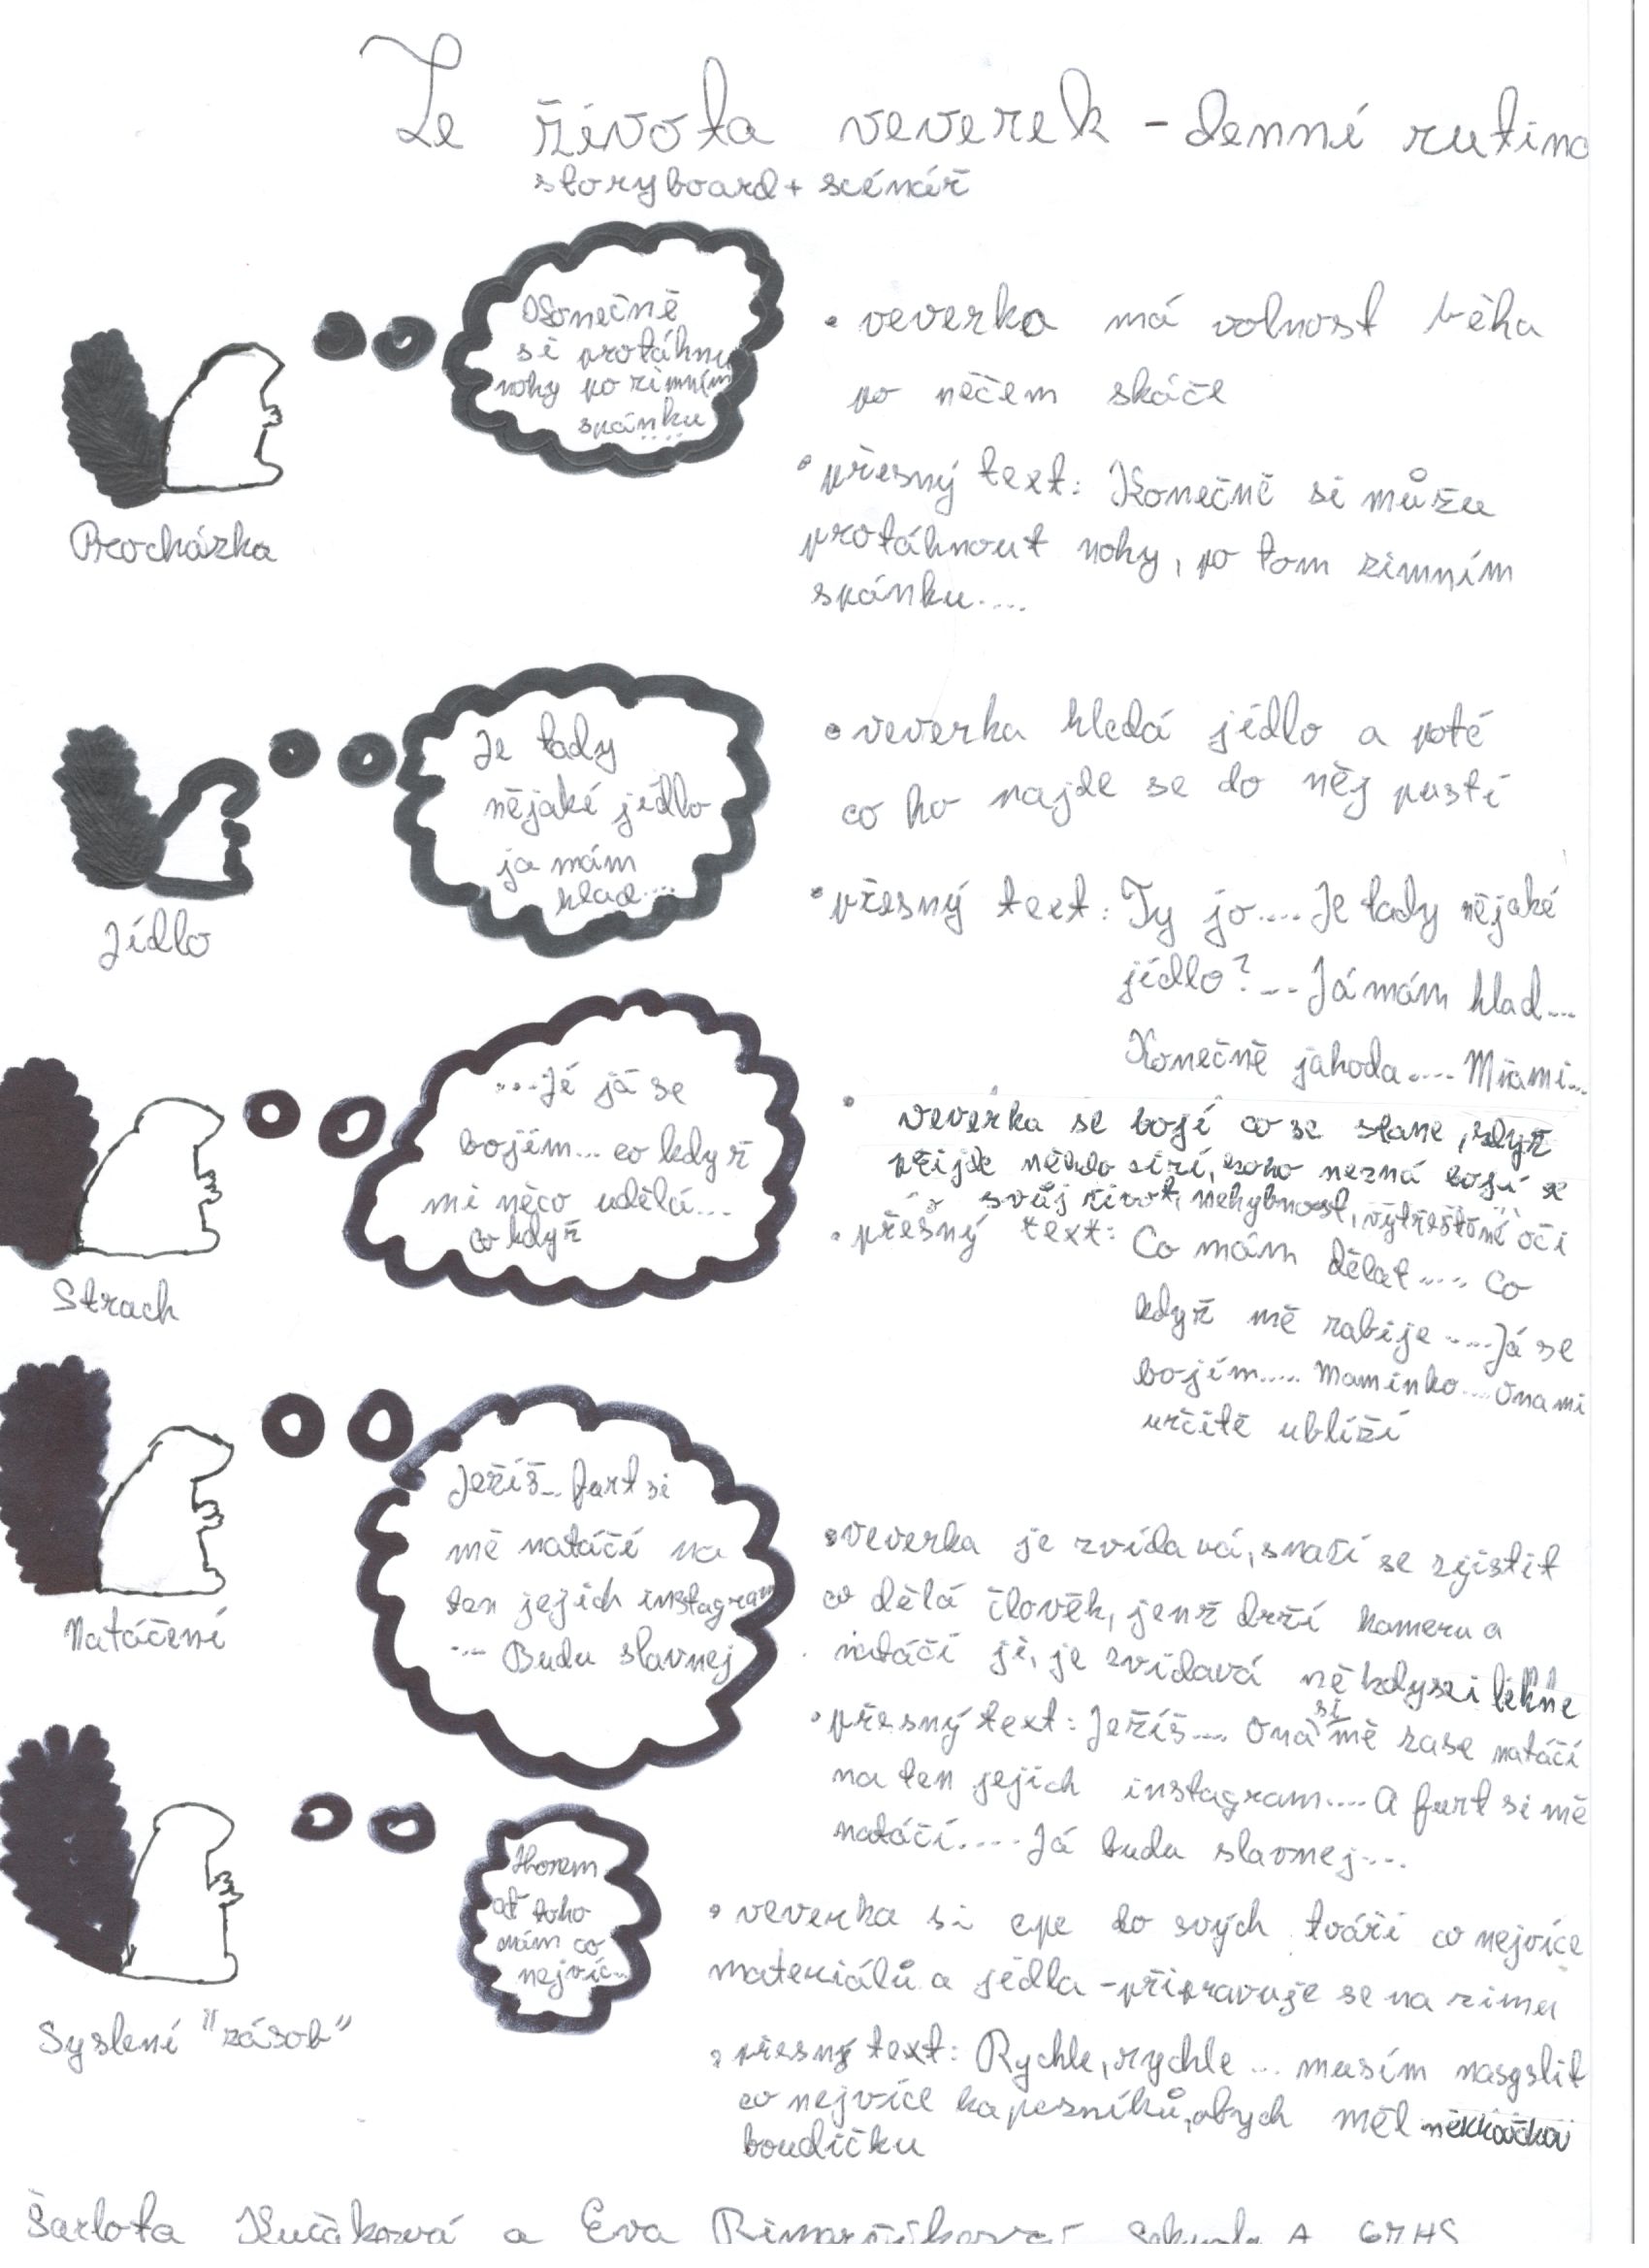 Ze života veverek - denní rutina
storyboard + scénář
Konečně
si protáhnu
nohy po zimním
spánku....
Procházka
• veverka má volnost běhá
po něčem skáče
• přesný text: Konečně si můžu
protáhnout nohy, po tom zimním
spánku....
Je tady
nějaké jídlo
ja mám
hlad....
Jídlo
• veverka hledá jídlo a poté
co ho najde se do něj pustí
• přesný text: Ty jo.... Je tady nějaké
jídlo?... Já mám hlad...
Konečně jahoda.... Miami...
....Jé já se
bojím... co když
mi něco udělá...
co když
Strach
• veverka se bojí co se stane, když
přijde někdo cizí, koho nezná bojí se
o svůj život, nehybnost, vytřeštěné oči
• přesný text: Co mám dělat.... Co
když mě zabije.... Já se
bojím..... Maminko.... Ona mi
určitě ublíží
Ježíš... furt si
mě natáčí na
ten jejich instagram
... Budu slavnej
Natáčení
• veverka je zvídavá, snaží se zjistit
co dělá člověk, jenž drží kameru a
natáčí ji, je zvídavá někdy si lékne
• přesný text: Ježíš.... Ona si mě zase natáčí
na ten jejich instagram.... A furt si mě
natáčí.... Já budu slavnej...
at toho
mám co
nejvíc...
Syslení "zásob"
• veverka si cpe do svých tváří co nejvíce
materiálů a jídla - připravuje se na zimu
• přesný text: Rychle, rychle ... musím nasyslit
co nejvíce kapesníků, abych měl
boudičku
Šarlota a Eva Sekunda A GMHS